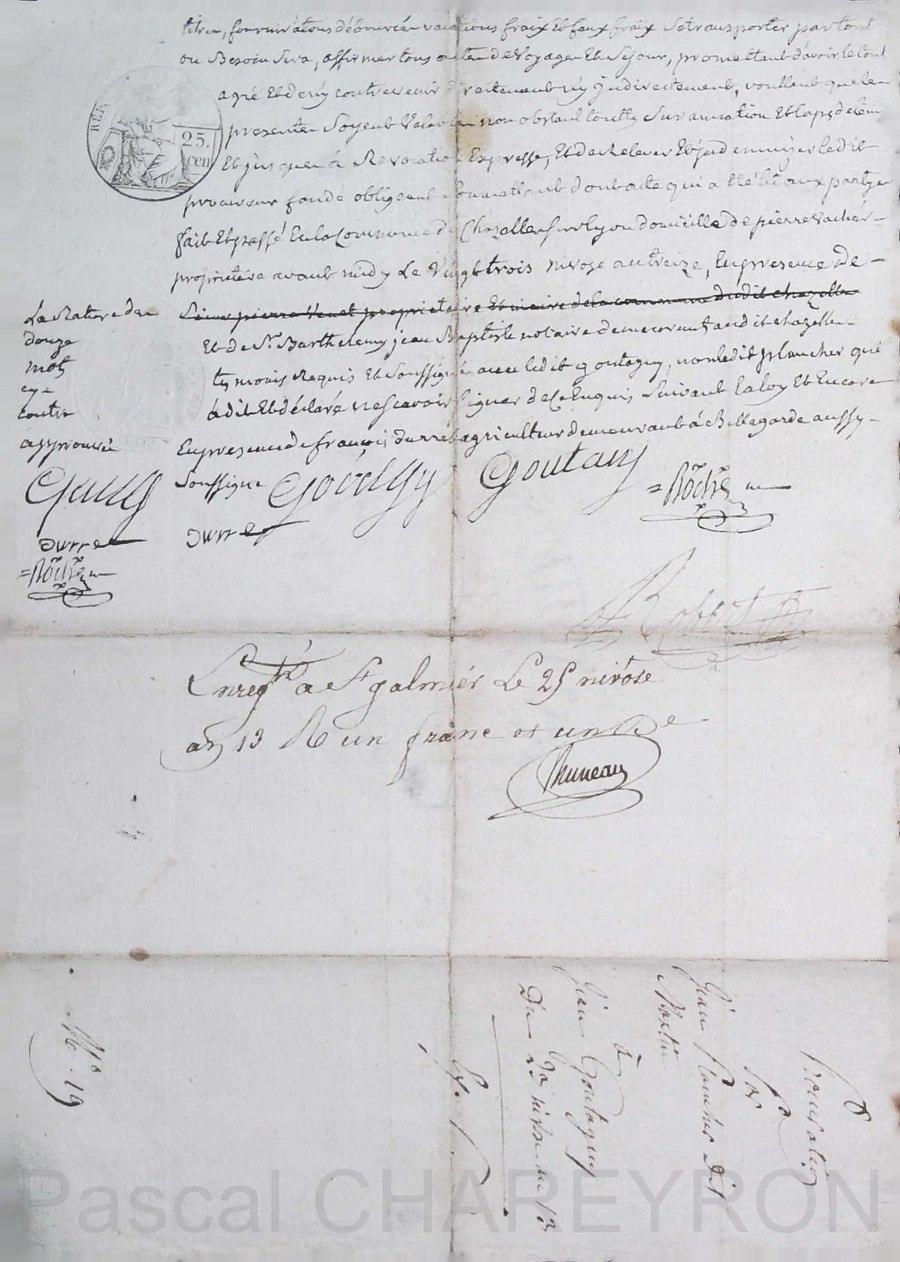 titres, fournir à tous déboursés vacations fraix Et faux fraix Se transporter partout
ou Besoin Sera, affirmer tous actes de Voyages Et Séjour, promettant d'avoir le tout
agrée Et de ny contrevenir directement ny indirectement, voullent que les
presentes Soyent Valables non obstant toutte Surannation Et laps de tems
Et jusques à Revocation Expresse, Et de Relever Et jndemniser ledit
procureur fondé obligeant Soumettant dont acte qui a été lû aux partyes
fait Et passé En la Commune de Chazelles sur lyon domicille de pierre Vacher
propriétaire avant midy Le Vingt trois nivose an treize, En presence de
Sieur pierre Venet propriétaire Et maire de la commune dudit chazelle
Et de Sr Barthelemy jean Baptiste notaire demeurant audit chazelles
témoins Requis Et Soussignés avec ledit goutagny, non ledit plancher qui
a dit Et déclaré ne Scavoir Signer de Ce Enquis Suivant la loy Et Encore
En presence de françois durre agriculteur demeurant à Bellegarde aussy
Soussigné
La Rature des
douze
mots
cy-
contre
approuvée
Goutany
durre
durre
REP
25
cen
Enregté a St galmier Le 25 nivôse
an 13 R un franc et un De
Bruneau
Procuration
Par
Jean Plancher Dit
Martin
à
Jean Goutagny
Du 23 nivose an 13
No. 19
Pascal CHAREYRON